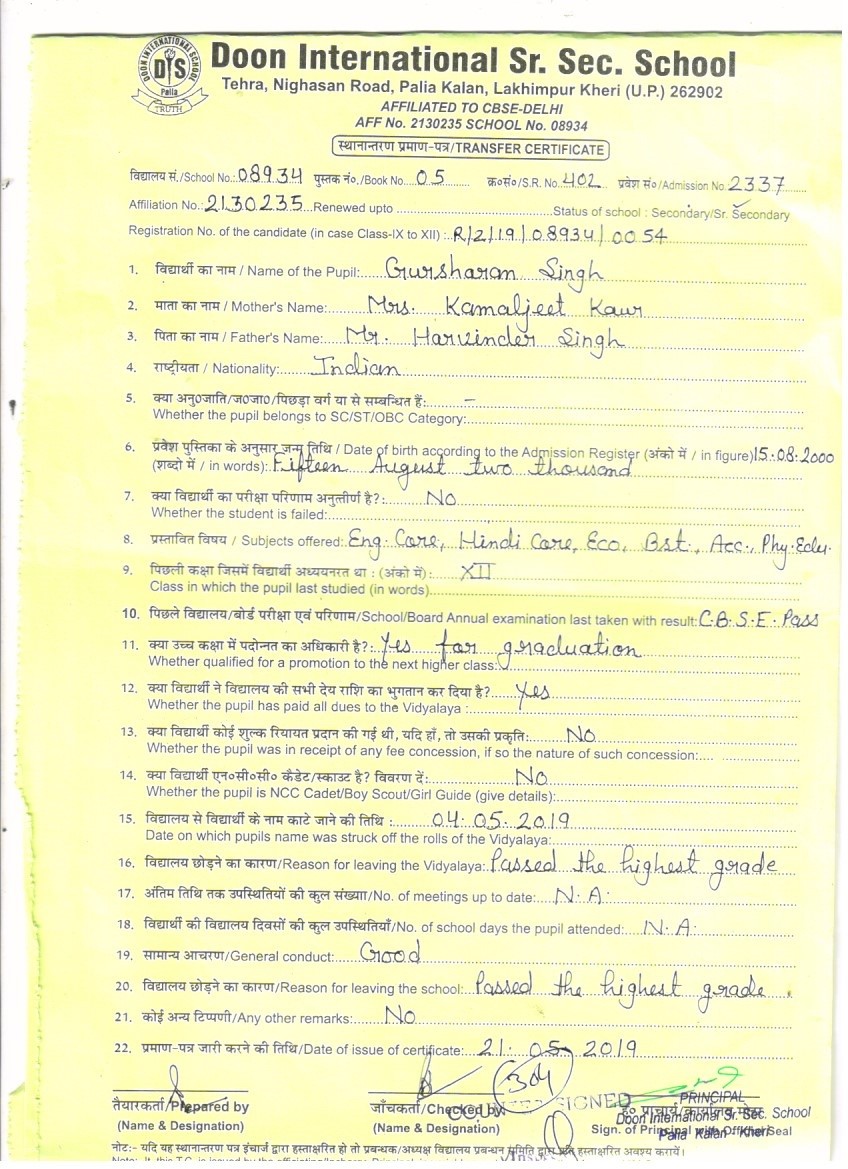 DOON INTERNATIONAL SCHOOL
DIS
Palia
TRUTH
Doon International Sr. Sec. School
Tehra, Nighasan Road, Palia Kalan, Lakhimpur Kheri (U.P.) 262902
AFFILIATED TO CBSE-DELHI
AFF No. 2130235 SCHOOL No. 08934
स्थानान्तरण प्रमाण-पत्र/TRANSFER CERTIFICATE
विद्यालय सं./School No.: 08934 पुस्तक नं०./Book No. 05 क्र०सं०/S.R. No. 402 प्रवेश सं०/Admission No. 2337
Affiliation No.: 2130235 Renewed upto Status of school : Secondary/Sr. Secondary
Registration No. of the candidate (in case Class-IX to XII) : R/2/19/08934/0054
1. विद्यार्थी का नाम / Name of the Pupil: Gursharan Singh
2. माता का नाम / Mother's Name: Mrs. Kamaljeet Kaur
3. पिता का नाम / Father's Name: Mr. Harvinder Singh
4. राष्ट्रीयता / Nationality: Indian
5. क्या अनु०जाति/ज०जा०/पिछड़ा वर्ग या से सम्बन्धित हैं: –
Whether the pupil belongs to SC/ST/OBC Category:
6. प्रवेश पुस्तिका के अनुसार जन्म तिथि / Date of birth according to the Admission Register (अंको में / in figure) 15.08.2000
(शब्दो में / in words): Fifteen August two thousand
7. क्या विद्यार्थी का परीक्षा परिणाम अनुत्तीर्ण है?: No
Whether the student is failed:
8. प्रस्तावित विषय / Subjects offered: Eng. Core, Hindi Core, Eco, Bst., Acc., Phy. Edu.
9. पिछली कक्षा जिसमें विद्यार्थी अध्ययनरत था : (अंको में): XII
Class in which the pupil last studied (in words)
10. पिछले विद्यालय/बोर्ड परीक्षा एवं परिणाम/School/Board Annual examination last taken with result: C.B.S.E. Pass
11. क्या उच्च कक्षा में पदोन्नत का अधिकारी है?: Yes for graduation
Whether qualified for a promotion to the next higher class:
12. क्या विद्यार्थी ने विद्यालय की सभी देय राशि का भुगतान कर दिया है? Yes
Whether the pupil has paid all dues to the Vidyalaya :
13. क्या विद्यार्थी कोई शुल्क रियायत प्रदान की गई थी, यदि हाँ, तो उसकी प्रकृति: No
Whether the pupil was in receipt of any fee concession, if so the nature of such concession:
14. क्या विद्यार्थी एन०सी०सी० कैडेट/स्काउट है? विवरण दें: No
Whether the pupil is NCC Cadet/Boy Scout/Girl Guide (give details):
15. विद्यालय से विद्यार्थी के नाम काटे जाने की तिथि : 04.05.2019
Date on which pupils name was struck off the rolls of the Vidyalaya:
16. विद्यालय छोड़ने का कारण/Reason for leaving the Vidyalaya: Passed the highest grade
17. अंतिम तिथि तक उपस्थितियों की कुल संख्या/No. of meetings up to date: N.A.
18. विद्यार्थी की विद्यालय दिवसों की कुल उपस्थितियाँ/No. of school days the pupil attended: N.A.
19. सामान्य आचरण/General conduct: Good
20. विद्यालय छोड़ने का कारण/Reason for leaving the school: Passed the highest grade.
21. कोई अन्य टिप्पणी/Any other remarks: No
22. प्रमाण-पत्र जारी करने की तिथि/Date of issue of certificate: 21.05.2019
304
SIGNED PRINCIPAL
तैयारकर्ता/Prepared by जाँचकर्ता/Checked by Doon International Sr. Sec. School
(Name & Designation) (Name & Designation) Sign. of Principal with Official Seal
Palia Kalan Kheri
नोट:- यदि यह स्थानान्तरण पत्र इंचार्ज द्वारा हस्ताक्षरित हो तो प्रबन्धक/अध्यक्ष विद्यालय प्रबन्धन समिति द्वारा हस्ताक्षरित अवश्य करायें।